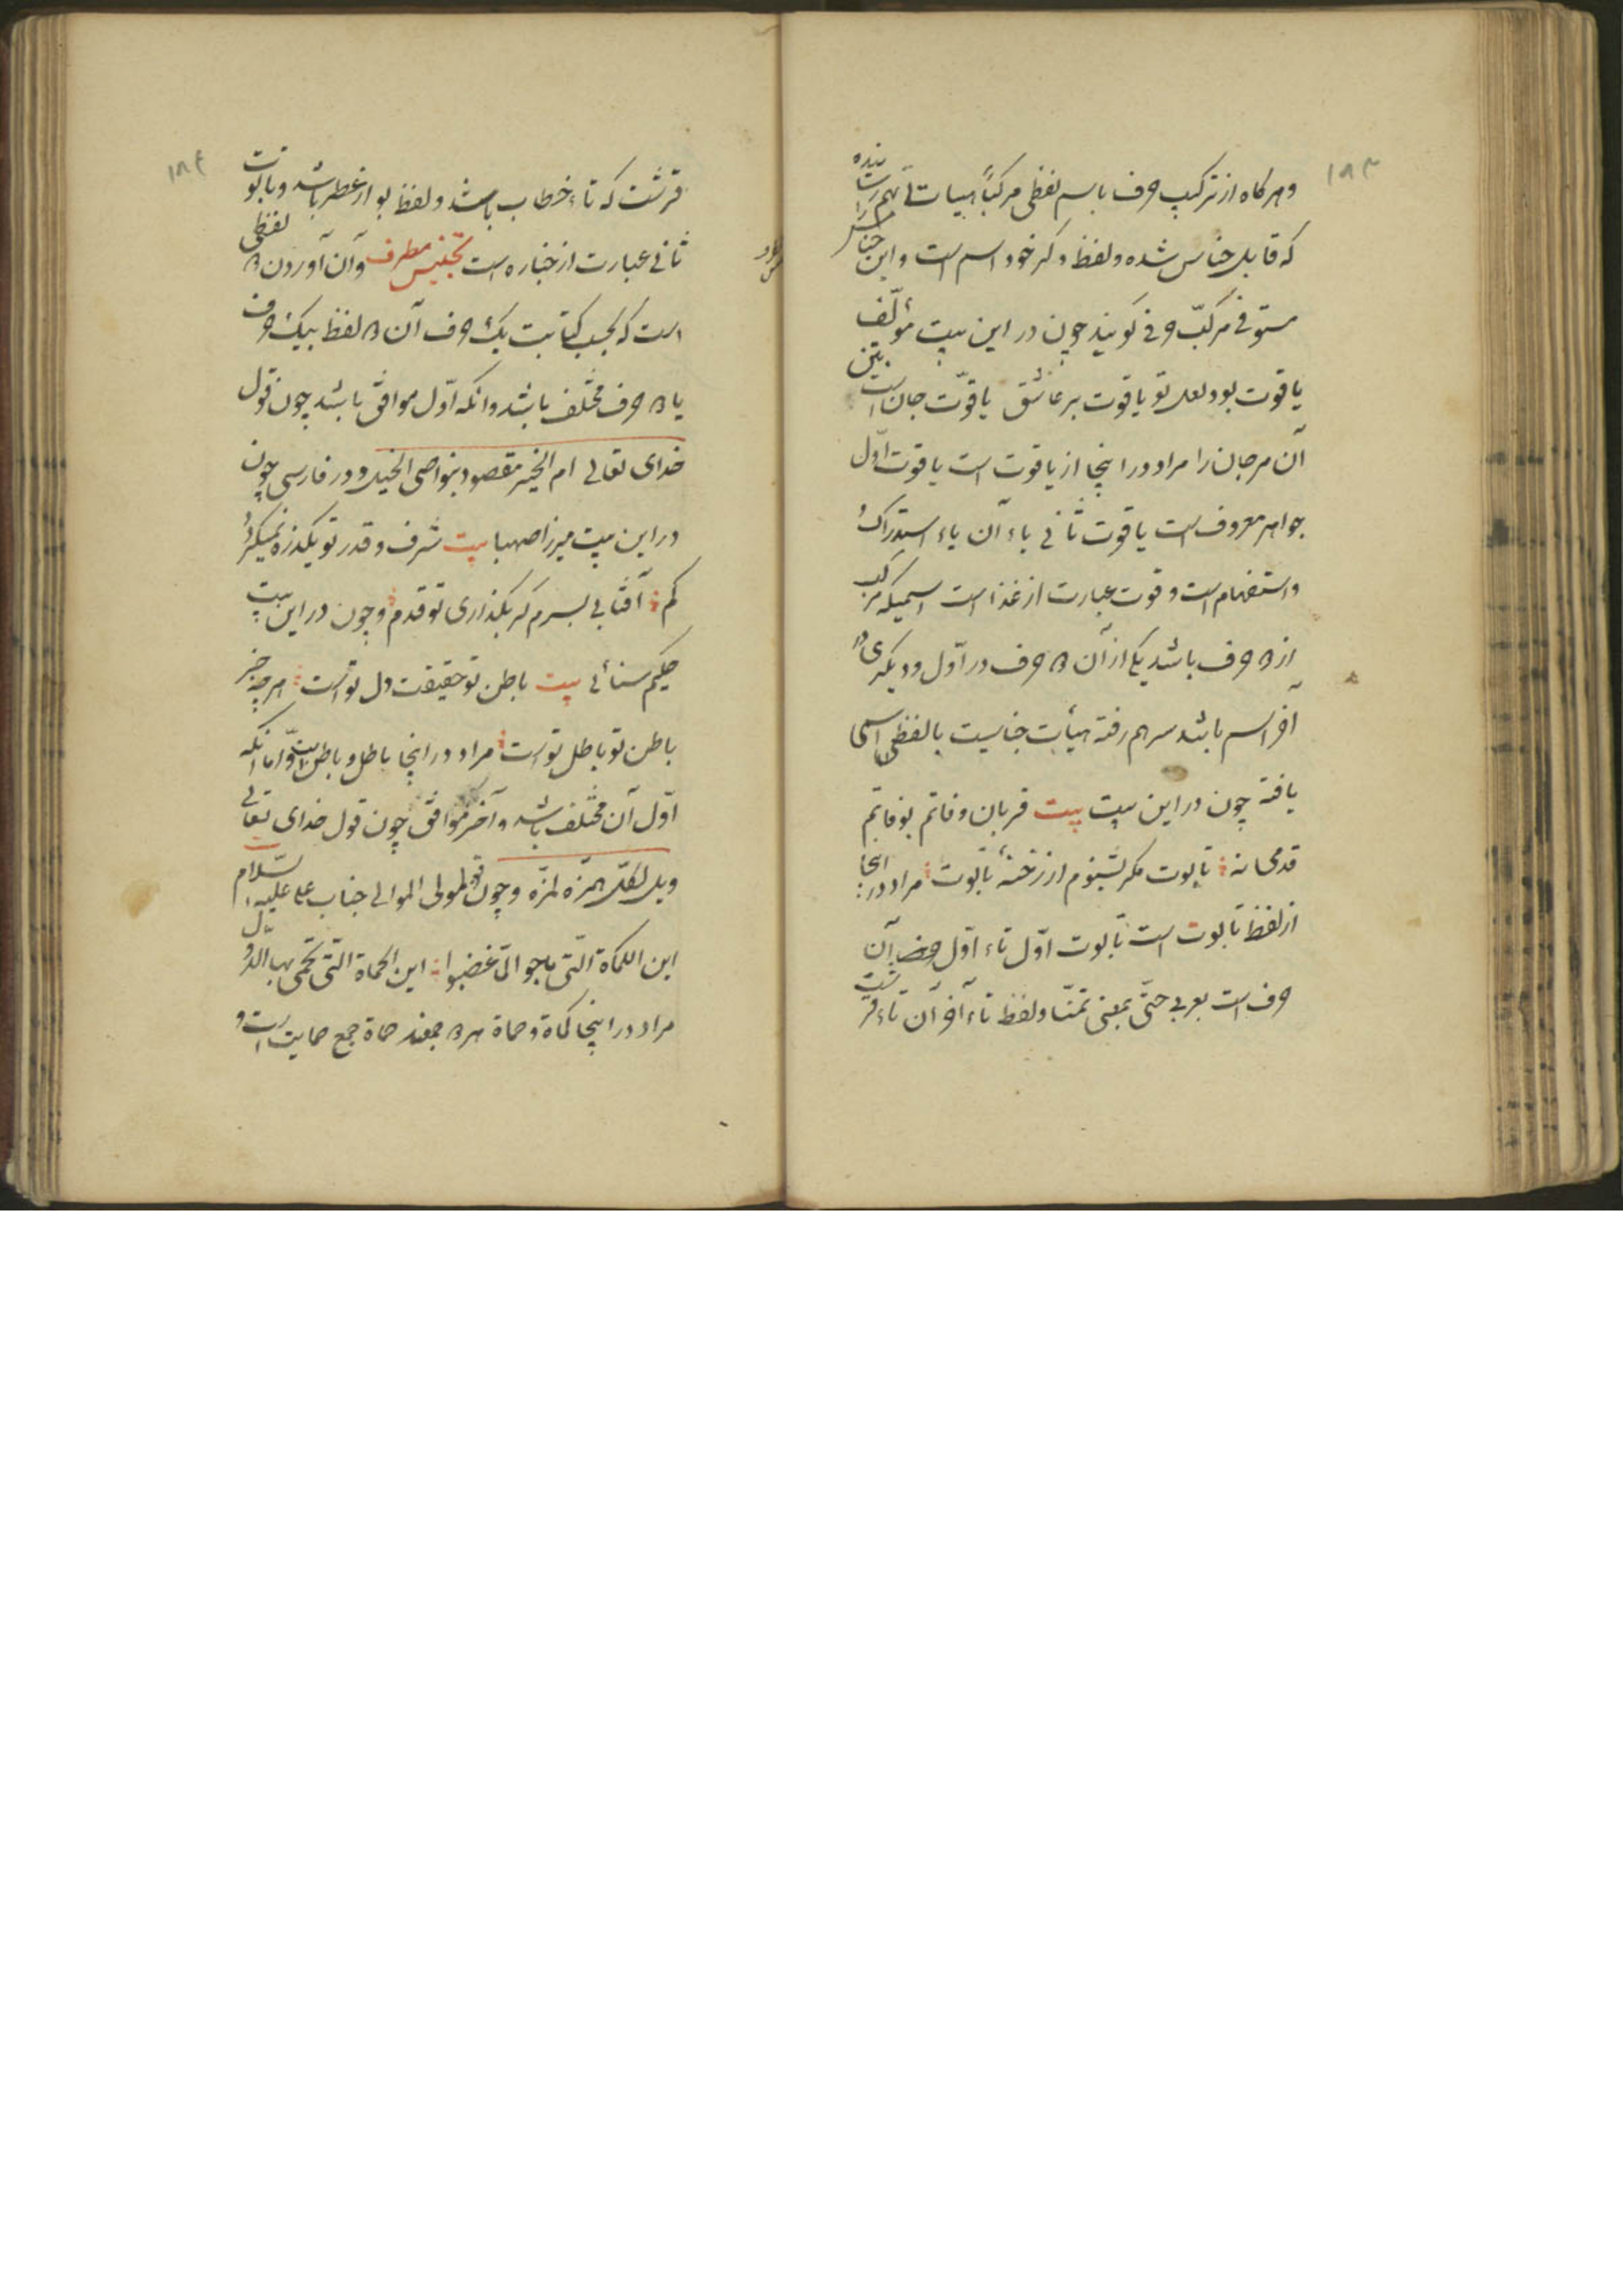 ۱۸۳
وهرکاه از ترکیب حرف با سم لفظی مرکباً هیات تا بهم رسانیده
که قابل جناس شده ولفظ دکر خود اسم است و این جناس را
مستوفی مرکب حرفی کویند چون در این بیت مؤلّف بیتین
یاقوت بود لعل تو یا قوت بر عاشق یا قوّت جان است
آن مرجان را مراد در اینجا از یاقوت است یاقوت اوّل
جواهر معروف است یا قوت ثانی یاء آن یاء استدراک
و استفهام است و قوت عبارت از غذا است اسمیکه مرکب
از ۲ حرف باشد یکی از آن ۲ حرف در اوّل و دیکری در
آخر اسم باشد سرهم رفته هیأت جناسیت با لفظی اسمی
یافته چون در این بیت بیت قربان وفاتم بوفاتم
قدمی نه تابوت مکر بشنوم از رخنهٔ تابوت مراد در اینجا
از لفظ تابوت است تابوت اوّل تاء اوّل آن
حرف است بعربی حتّی بمعنی تمنّا ولفظ تاء آخر آن تاء قرشت
۱۸۴
قرشت که تاء خطاب باشد ولفظ بو از عطر باشد و تابوت
ثانی عبارت از جنازه است تجنیس مطرف و آن آوردن ۲ لفظی
است که بحسب کتابت یک حرف آن ۲ لفظ بیک حرف
یا ۲ حرف مختلف باشد و انکه اوّل موافق باشد چون قول
خدای تعالی ام الخیر مقصود بنواصی الخیل و در فارسی چون
در این بیت میرزا صهبا بیت شرف و قدر تو یکذره نمیکردد
کم آفتابی بسرم کر بکذاری تو قدم و چون در این بیت
حکیم سنائی بیت باطن تو حقیقت دل تو است هر چه جز
باطن تو باطل تو است مراد در اینجا باطل و باطن است و امّا انکه
اوّل آن مختلف باشد و آخر موافق چون قول خدای تعالی
ویل لکلّ همزه لمزه و چون قول مولی الموالی جناب علی علیه السّلام
این الکماة التی ماجوا لمّا غضبوا این الحماة التی تحمی بها الدّول
مراد در اینجا کماة و حماة هر ۲ بمعنی حماة جمع حمایت است و